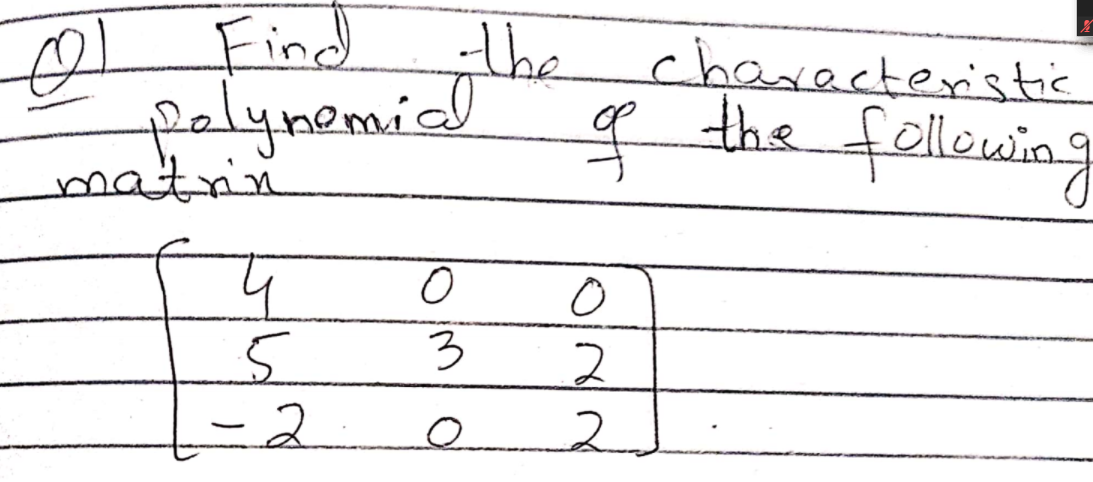 Q1 Find the characteristic
polynomial of the following
matrix
4 0 0
5 3 2
-2 0 2